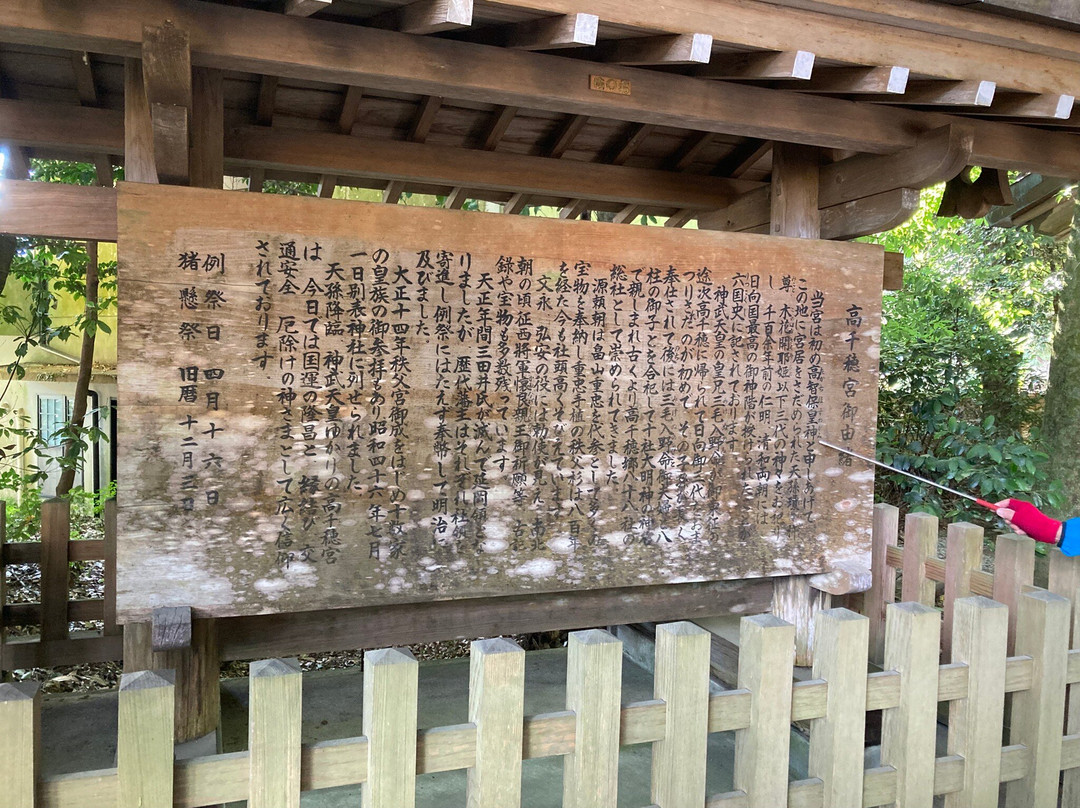 高千穂宮御由緒
当宮は初め高智保皇神と申しあげて
この地に宮居をさだめられた天孫瓊々杵
尊 木花開耶姫以下三代の神々をお祀り
し 千百余年前の仁明 清和両朝には
日向国最高の御神階が授けられたことが
六国史に記されております
神武天皇の皇兄三毛入野命が御東征の
途次高千穂に帰られて日向御三代をおま
つりさたのが初めで その子孫が長く
奉仕されて後には三毛入野命御夫婦と八
柱の御子とを合祀して十社大明神の神名
で親しまれ古くより高千穂郷八十八社の
総社として崇められてきました
源頼朝は畠山重忠を代参として多くの
宝物を奉納し重忠手植の秩父杉は八百年
を経た今も社頭高くそびえています
文永 弘安の役には勅使が見えた 南北
朝の頃征西将軍懐良親王御祈願等 古記
録や宝物も多数残っています
天正年間三田井氏が滅んで延岡領とな
りましたが 歴代藩主はそれぞれ社殿
寄進し例祭にはたえず奉幣して明治に
及びました
大正十四年秩父宮御成をはじめ十数家
の皇族の御参拝もあり昭和四十六年七月
一日別表神社に列せられました
天孫降臨 神武天皇ゆかりの高千穂宮
は 今日では国運の隆昌と 縁結び 交
通安全 厄除けの神さまとして広く信仰
されております
例祭日 四月十六日
猪懸祭 旧暦 十二月三日